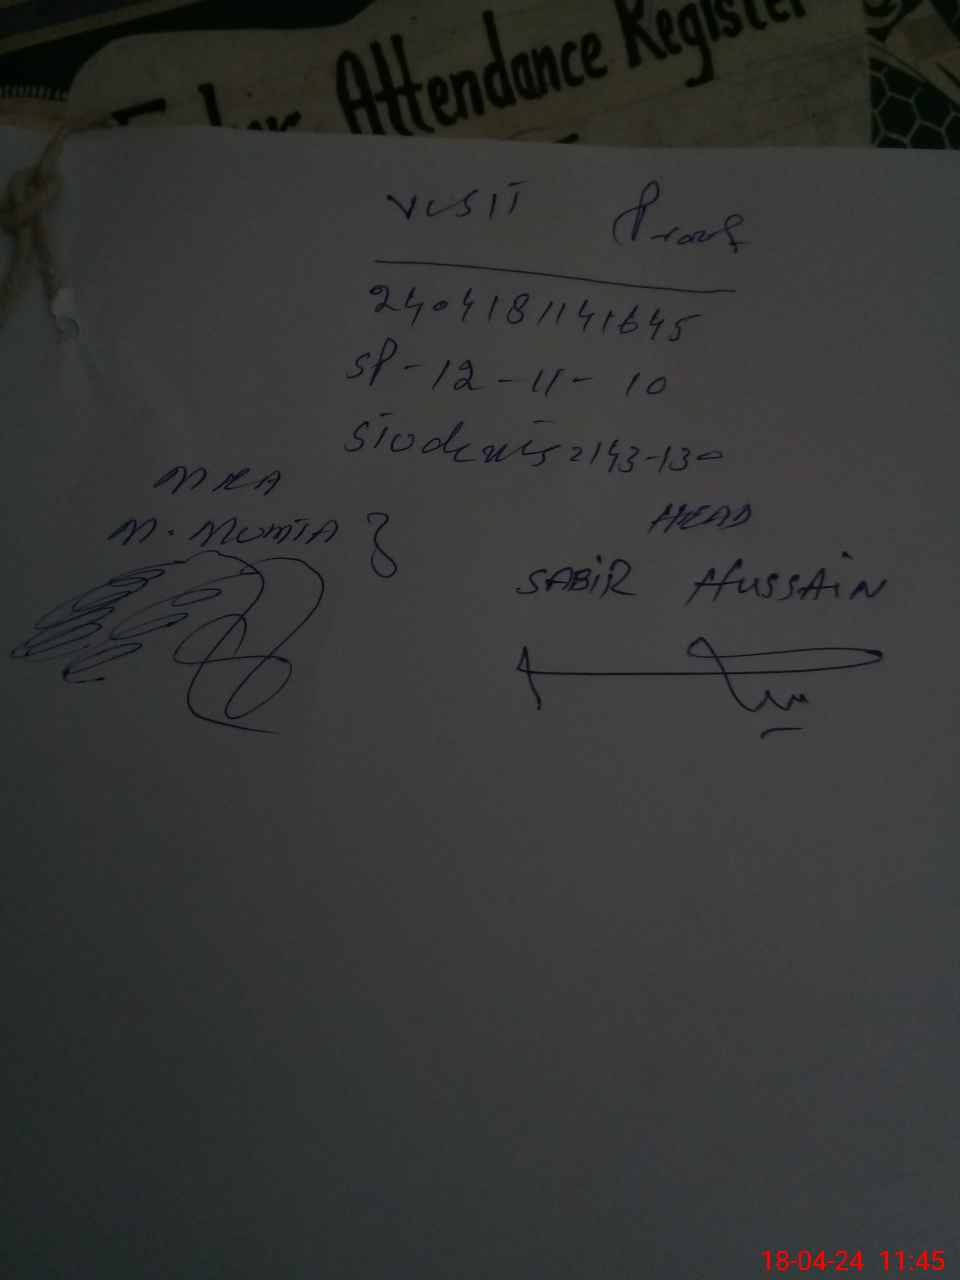 Attendance Register
VISIT Proof
2404181141645
SP-12-11-10
Students=143-130
MEA
M. MUMTAZ
HEAD
SABIR HUSSAIN
18-04-24 11:45